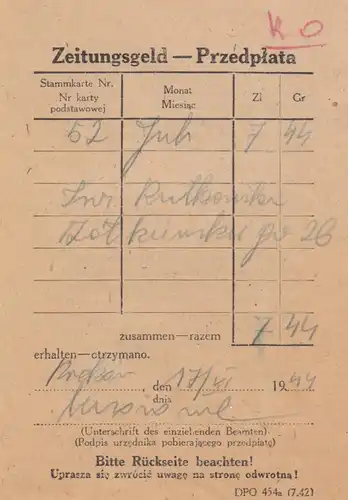 K O
Zeitungsgeld — Przedpłata
Stammkarte Nr.
Nr karty podstawowej
Monat
Miesiąc
Zl
Gr
52 Juli 7 44
zusammen—razem 7 44
erhalten—otrzymano.
, den 17/VI 1944
dnia
(Unterschrift des einziehenden Beamten)
(Podpis urzędnika pobierającego przedpłatę)
Bitte Rückseite beachten!
Uprasza się zwrócić uwagę na stronę odwrotną!
DPO 454a (7.42)